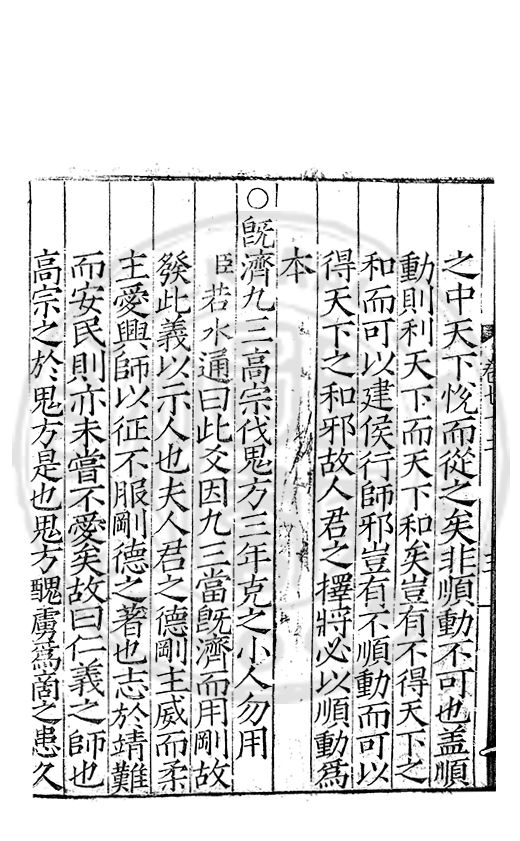 之中天下悅而從之矣非順動不可也盖順
動則利天下而天下和矣豈有不得天下之
和而可以建侯行師邪豈有不順動而可以
得天下之和邪故人君之擇將必以順動爲
本
○既濟九三高宗伐鬼方三年克之小人勿用
臣若水通曰此爻因九三當既濟而用剛故
發此義以示人也夫人君之德剛主威而柔
主愛興師以征不服剛德之著也志於靖難
而安民則亦未嘗不愛矣故曰仁義之師也
高宗之於鬼方是也鬼方醜虜爲啇之患久